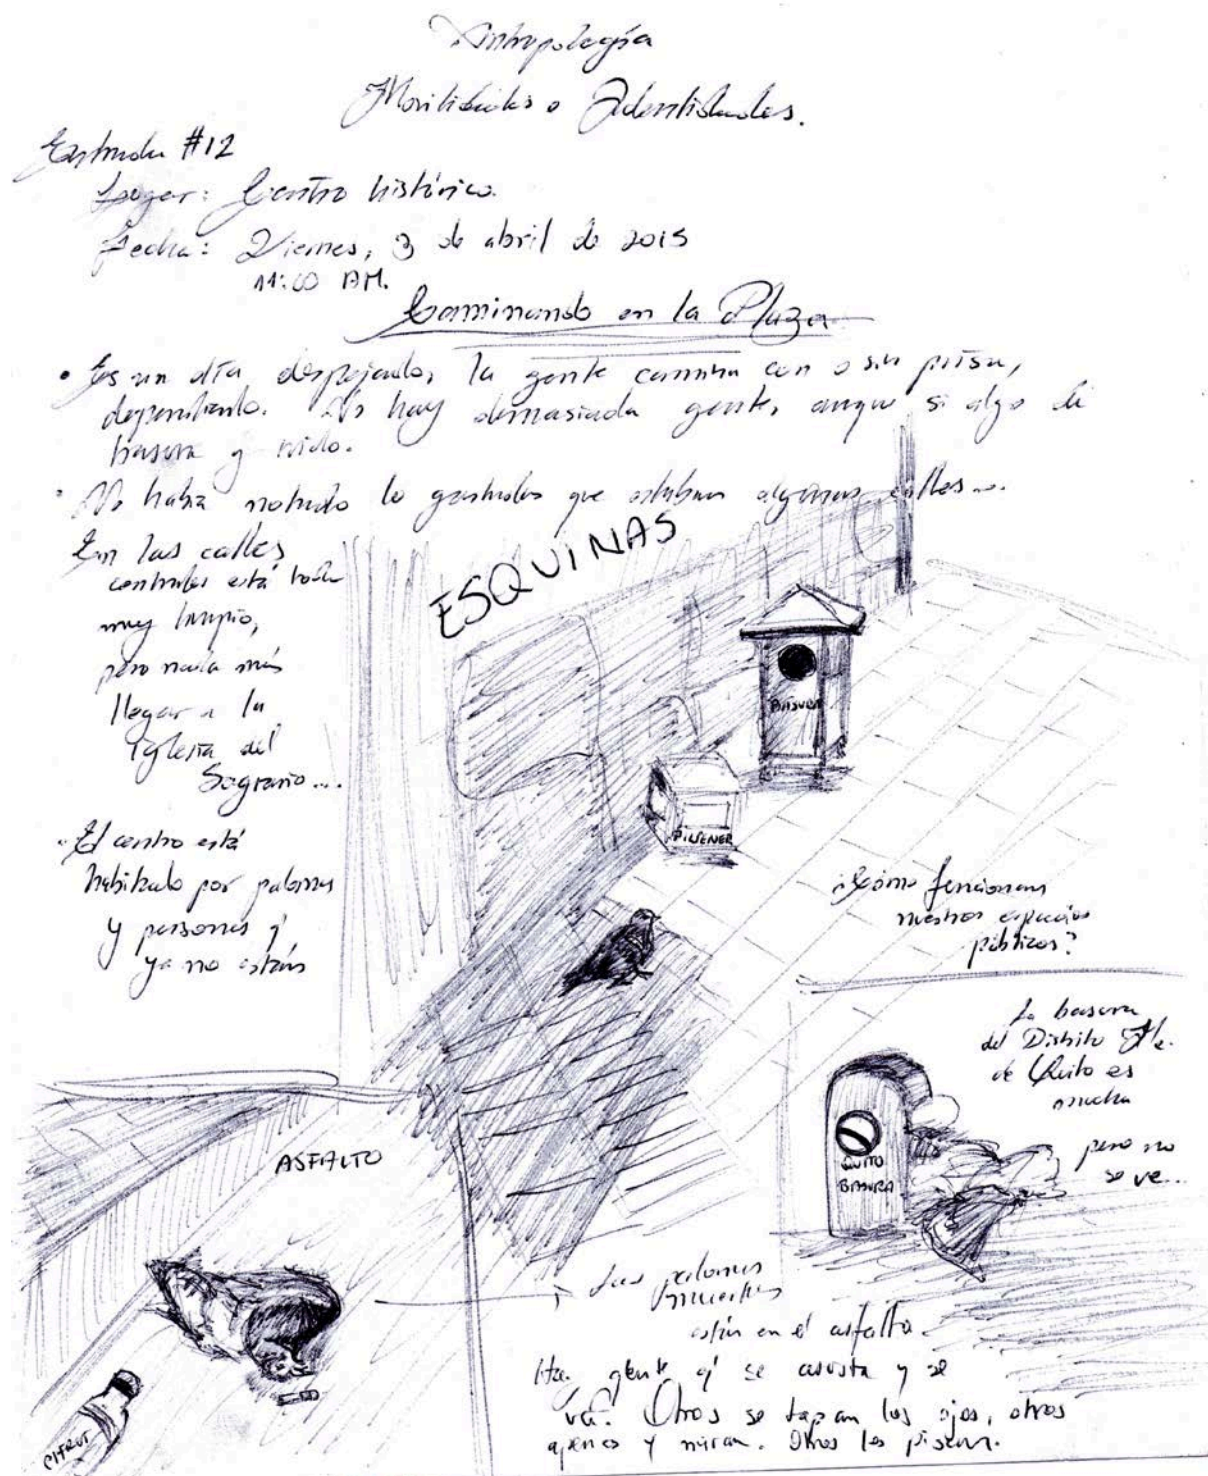 Antropología
Movilidades o Identidades.
Entrada #12
Lugar: Centro histórico.
Fecha: Viernes, 3 de abril de 2015
11:00 AM.
Caminando en la Plaza
• Es un día despejado, la gente camina con o sin prisa,
dependiendo. No hay demasiada gente, aunque si algo de
basura y ruido.
• No había notado lo gastadas que estaban algunas calles...
En las calles
centrales está todo
muy limpio,
pero nada más
llegar a la
Iglesia del
Sagrario...
• El centro está
habitado por palomas
y personas q'
ya no están
ESQUINAS
BASURA
PILSENER
¿Cómo funcionan
nuestros espacios
públicos?
La basura
del Distrito
de Quito es
mucha
pero no
se ve...
QUITO
BASURA
ASFALTO
CIFRUT
Las palomas
muertas
están en el asfalto.
Hay gente q' se asusta y se
va. Otros se tapan los ojos, otros
apenas y miran. Otros las pisan.